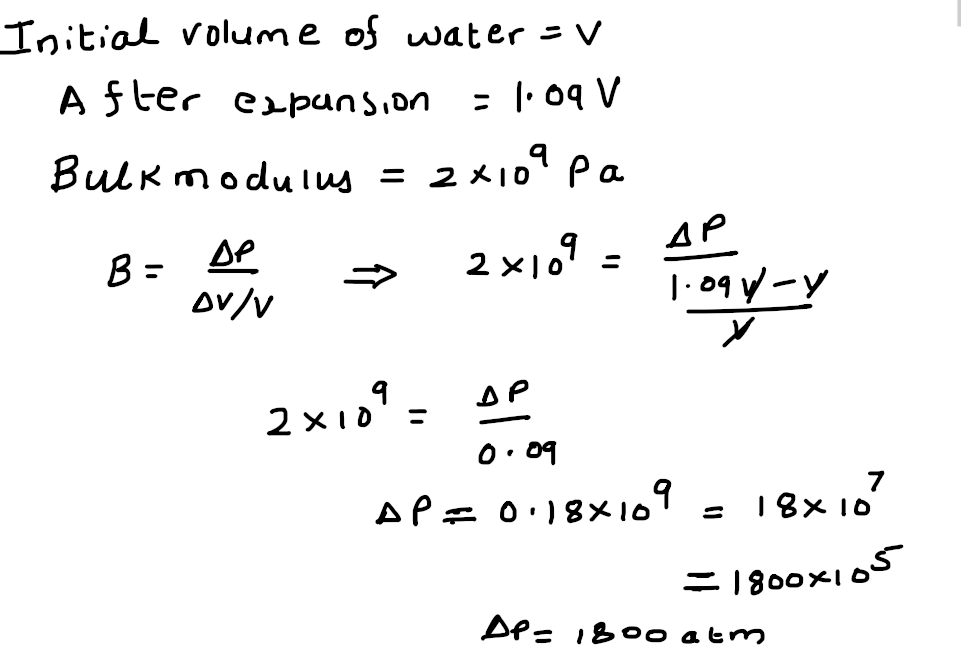 Initial volume of water = V
After expansion = 1.09 V
Bulk modulus = 2 × 10⁹ Pa
B = ΔP / (ΔV/V) ⇒ 2 × 10⁹ = ΔP / ((1.09 V − V) / V)
2 × 10⁹ = ΔP / 0.09
ΔP = 0.18 × 10⁹ = 18 × 10⁷
= 1800 × 10⁵
ΔP = 1800 atm